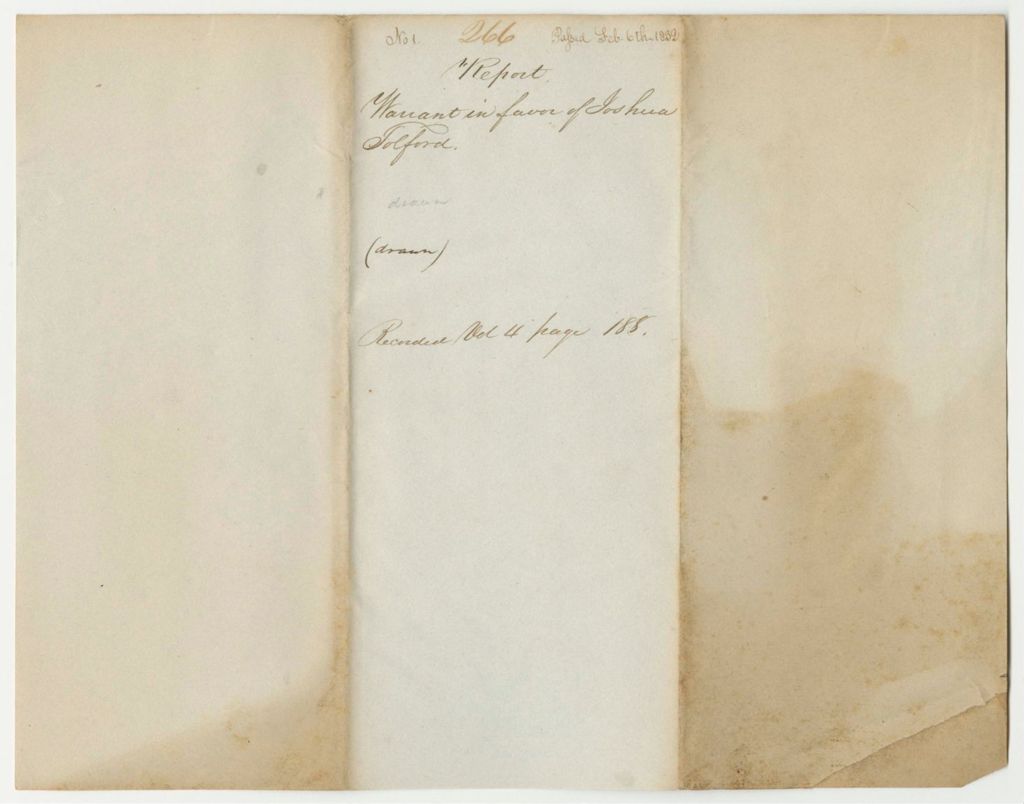 No 1. 266 Passed Feb. 6th 1832
Report.
Warrant in favor of Joshua
Tolford.
drawn
(drawn)
Recorded Vol 4 page 188.